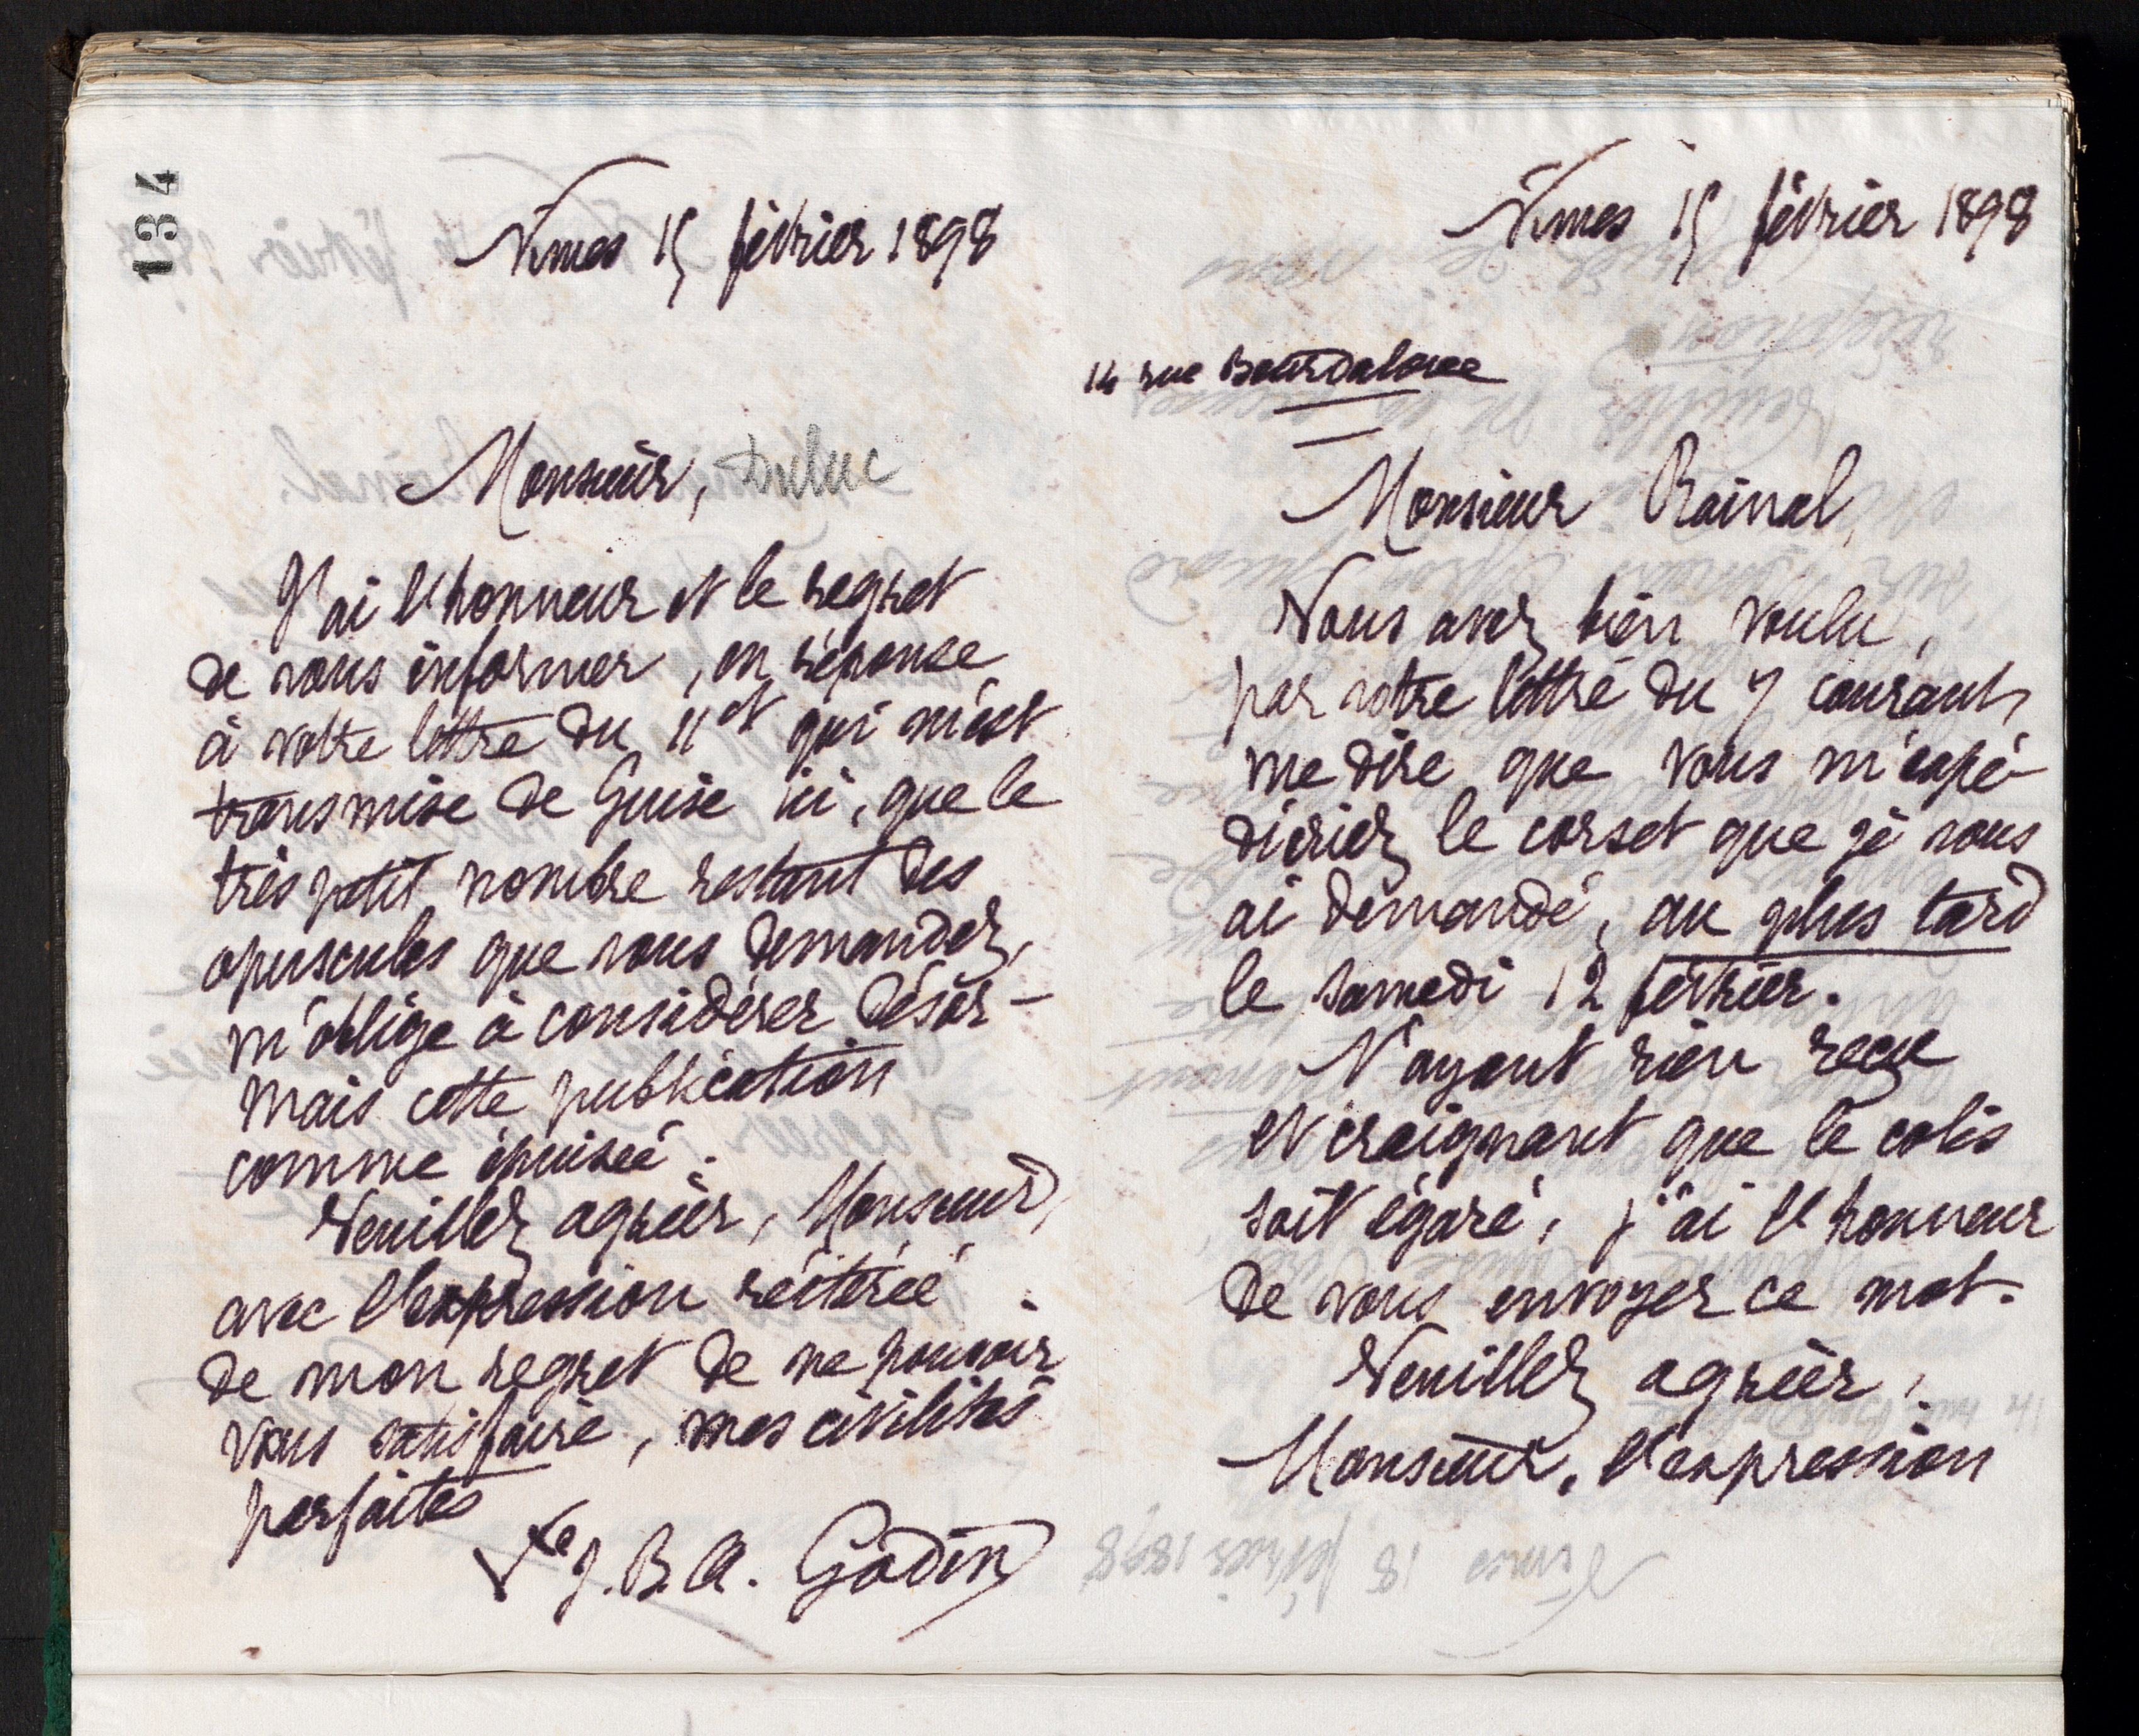 134
Nîmes 15 février 1898
Monsieur, Duluc
J'ai l'honneur et le regret
de vous informer, en réponse
à votre lettre du 11 ct qui m'est
transmise de Guise ici, que le
très petit nombre restant des
opuscules que vous demandez,
m'oblige à considérer désor-
mais cette publication
comme épuisée.
Veuillez agréer, Monsieur,
avec l'expression réitérée
de mon regret de ne pouvoir
vous satisfaire, mes civilités
parfaites
Ve J. B. A. Godin
Nîmes 15 février 1898
14 rue Bourdaloue
Monsieur Rainal,
Vous avez bien voulu,
par votre lettre du 7 courant,
me dire que vous m'expé-
dieriez le corset que je vous
ai demandé, au plus tard
le samedi 12 février.
N'ayant rien reçu
et craignant que le colis
soit égaré, j'ai l'honneur
de vous envoyer ce mot.
Veuillez agréer,
Monsieur, l'expression